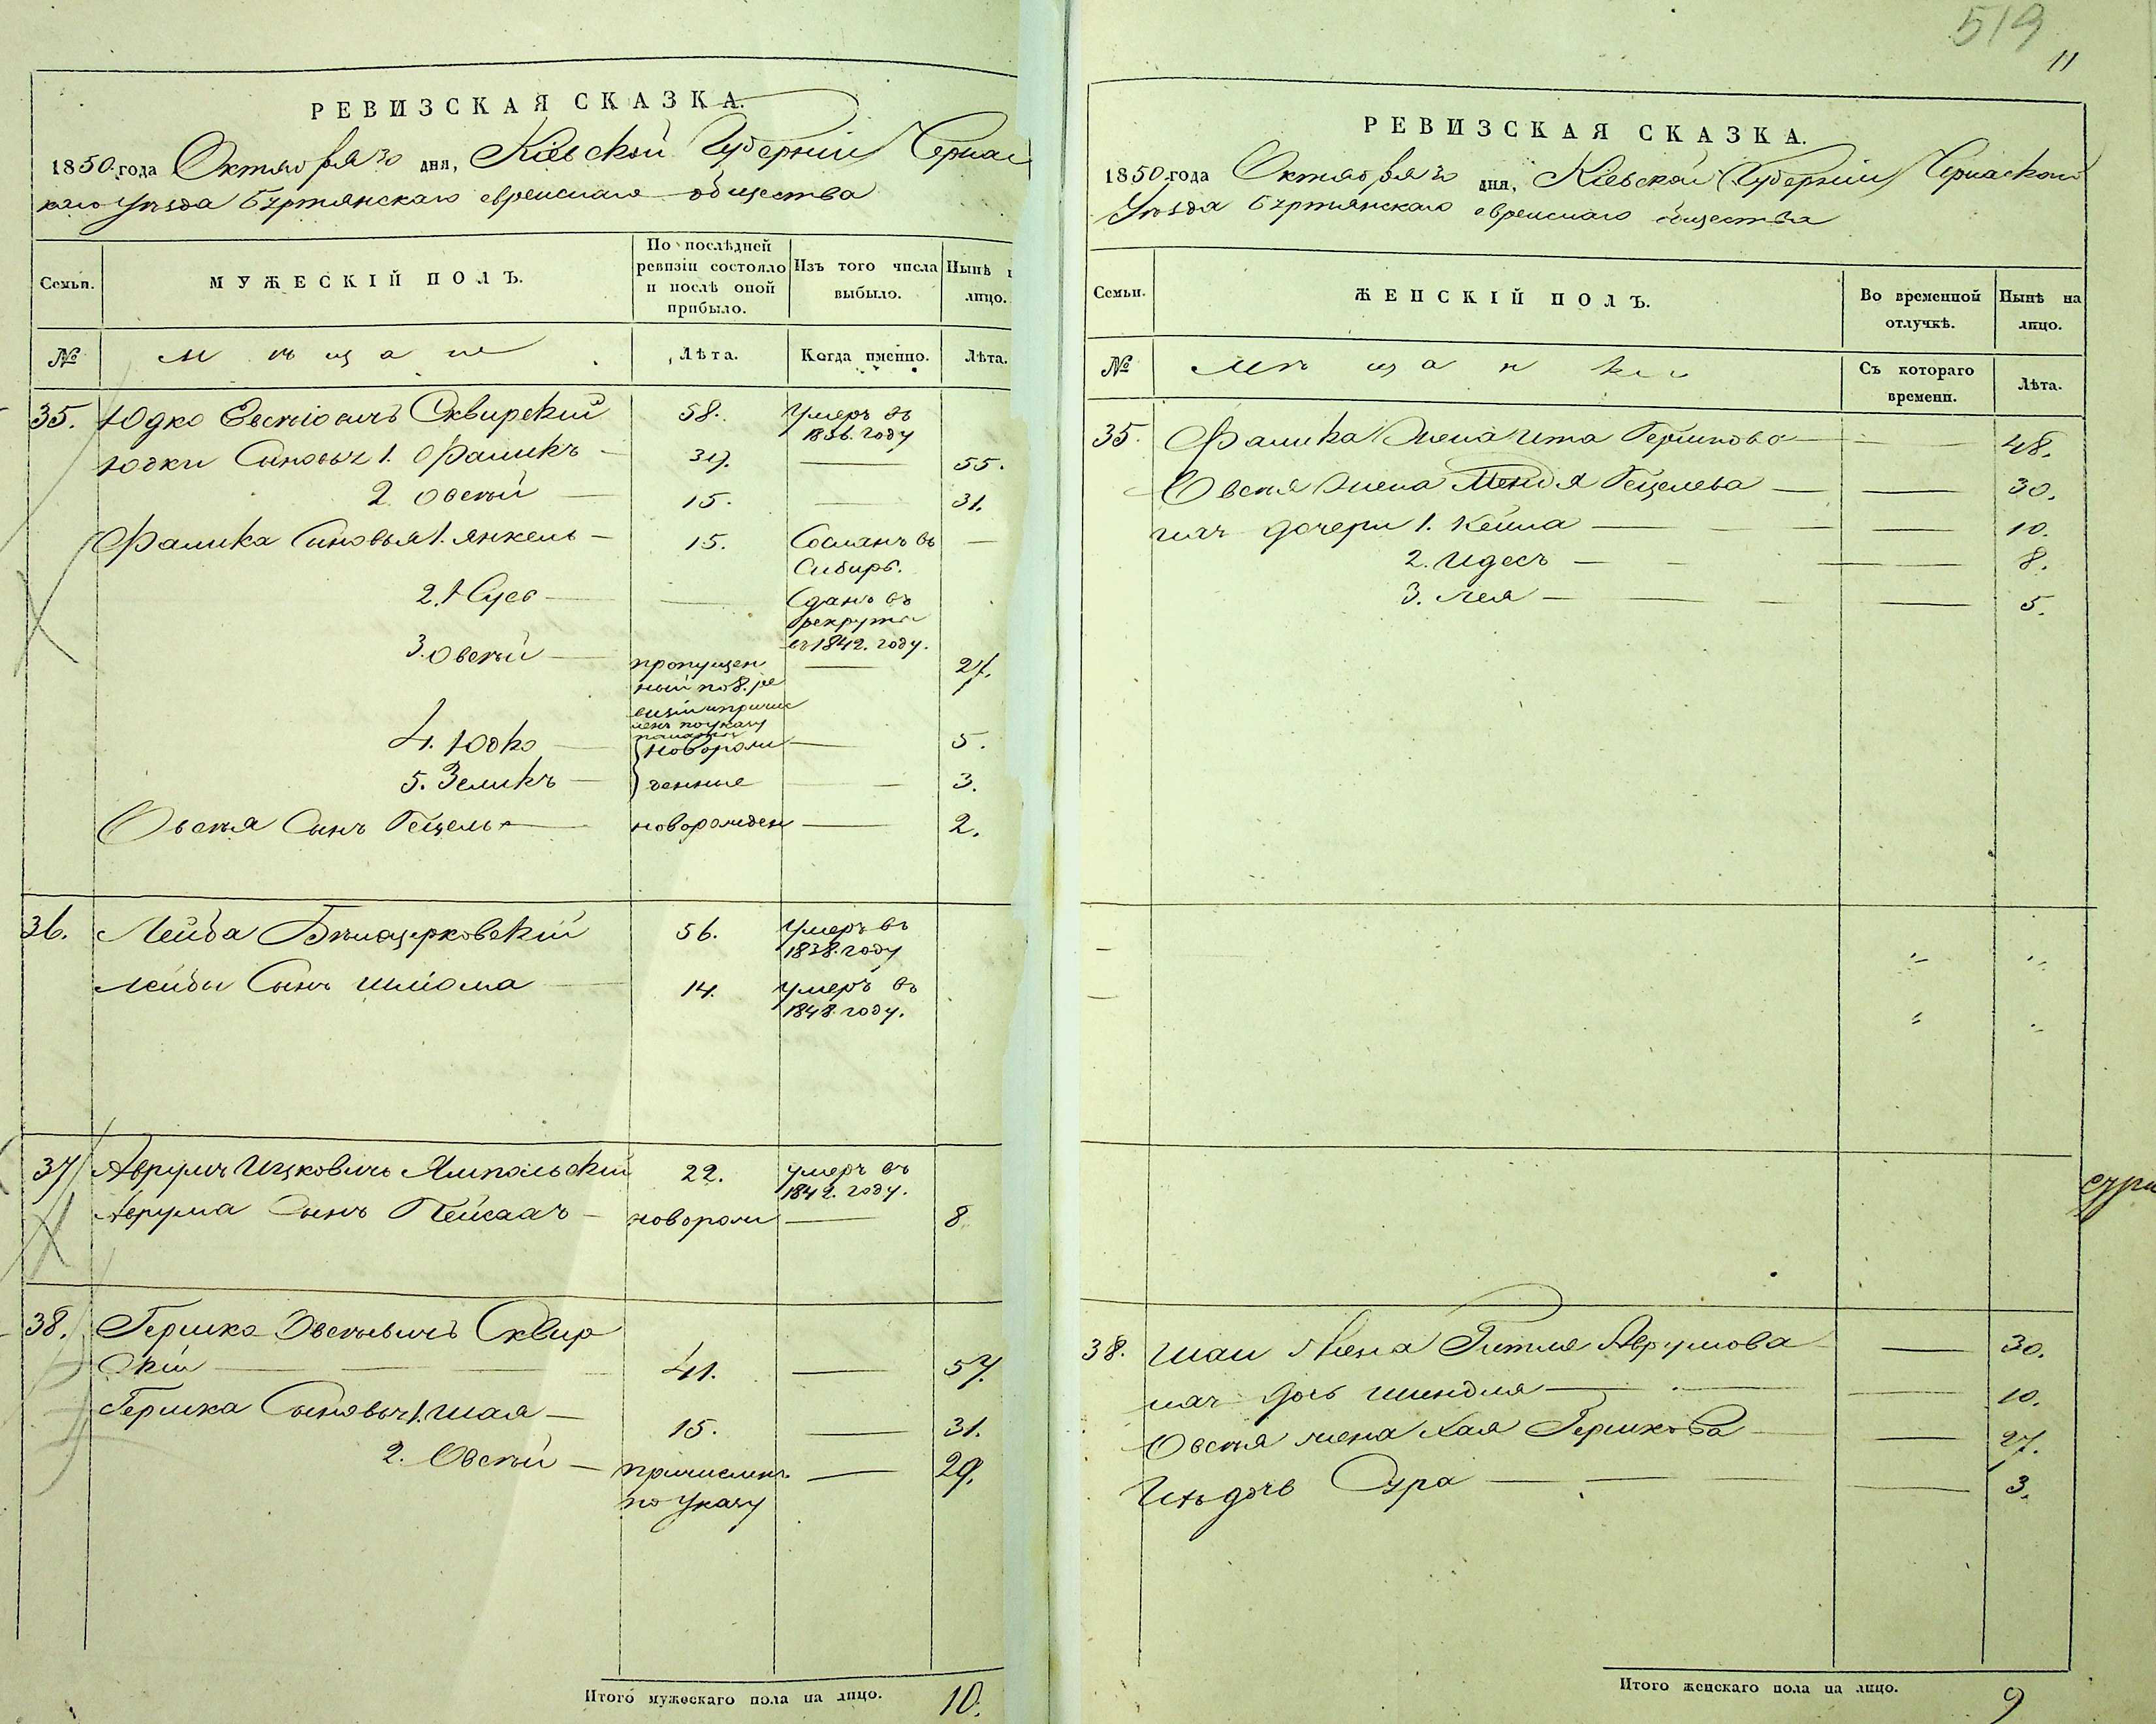 519
11
РЕВИЗСКАЯ СКАЗКА.
1850. года Октября 30 дня, Кіевской Губерніи Черкас
каго Уѣзда Буртянскаго еврейскаго общества
Семьи.
МУЖЕСКІЙ ПОЛЪ.
По послѣдней ревизіи состояло и послѣ оной прибыло.
Изъ того числа выбыло.
Нынѣ
лицо.
№
мѣщане
Лѣта.
Когда именно.
Лѣта.
35. Юдко Евсѣіовичъ Сквирскій 58. Умеръ въ
1836. году
Юдки Сыновья 1. Фаликъ — — 55.
2. Овсѣй — 15. — 31.
Фалика Сыновья 1. Янкель — 15. Сосланъ въ —
Сибирь.
2. — — Сданъ въ
рекруты
въ 1842. году.
3. Овсѣй — пропущен — 27.
ный по 8. ре
визіи и причис
ленъ по указу
4. Юдко — новорож — 5.
5. Зеликъ — денные — 3.
Овсѣя Сынъ Гецель — новорожден — 2.
36. Лейба Бѣлацерковскій 56. Умеръ въ
1838. году
Лейбы Сынъ Шлiома — 14. умеръ въ
1848. году.
37 Аврумъ Ицковичъ Ямпольскій 22. умеръ въ
1842. году.
Аврума Сынъ Пейсахъ — новорож — 8.
38. Гершко Овсѣевичъ Сквир
скій — 41. — 57.
Гершка Сыновья 1. Шая — 15. — 31.
2. Овсѣй — причисленъ — 29.
по Указу
Итого мужескаго пола на лицо. 10.
РЕВИЗСКАЯ СКАЗКА.
1850. года Октября 30 дня, Кіевской Губерніи Черкаскаго
Уѣзда Буртянскаго еврейскаго общества
Семьи.
ЖЕНСКІЙ ПОЛЪ.
Во временной отлучкѣ.
Нынѣ на лицо.
№
Мѣщанки
Съ котораго времени.
Лѣта.
35. Фалика Жена Ита Гершкова — 48.
Овсѣя Жена Мендя Гецелева — 30.
ихъ дочери 1. Кейла — 10.
2. Идесъ — 8.
3. Лея — 5.
38. Шаи Жена Гитля Аврумова — 30.
ихъ дочь Шиндля — 10.
Овсѣя жена Хая Гершкова — 27.
Ихъ дочь Сура — 3.
Итого женскаго пола на лицо. 9